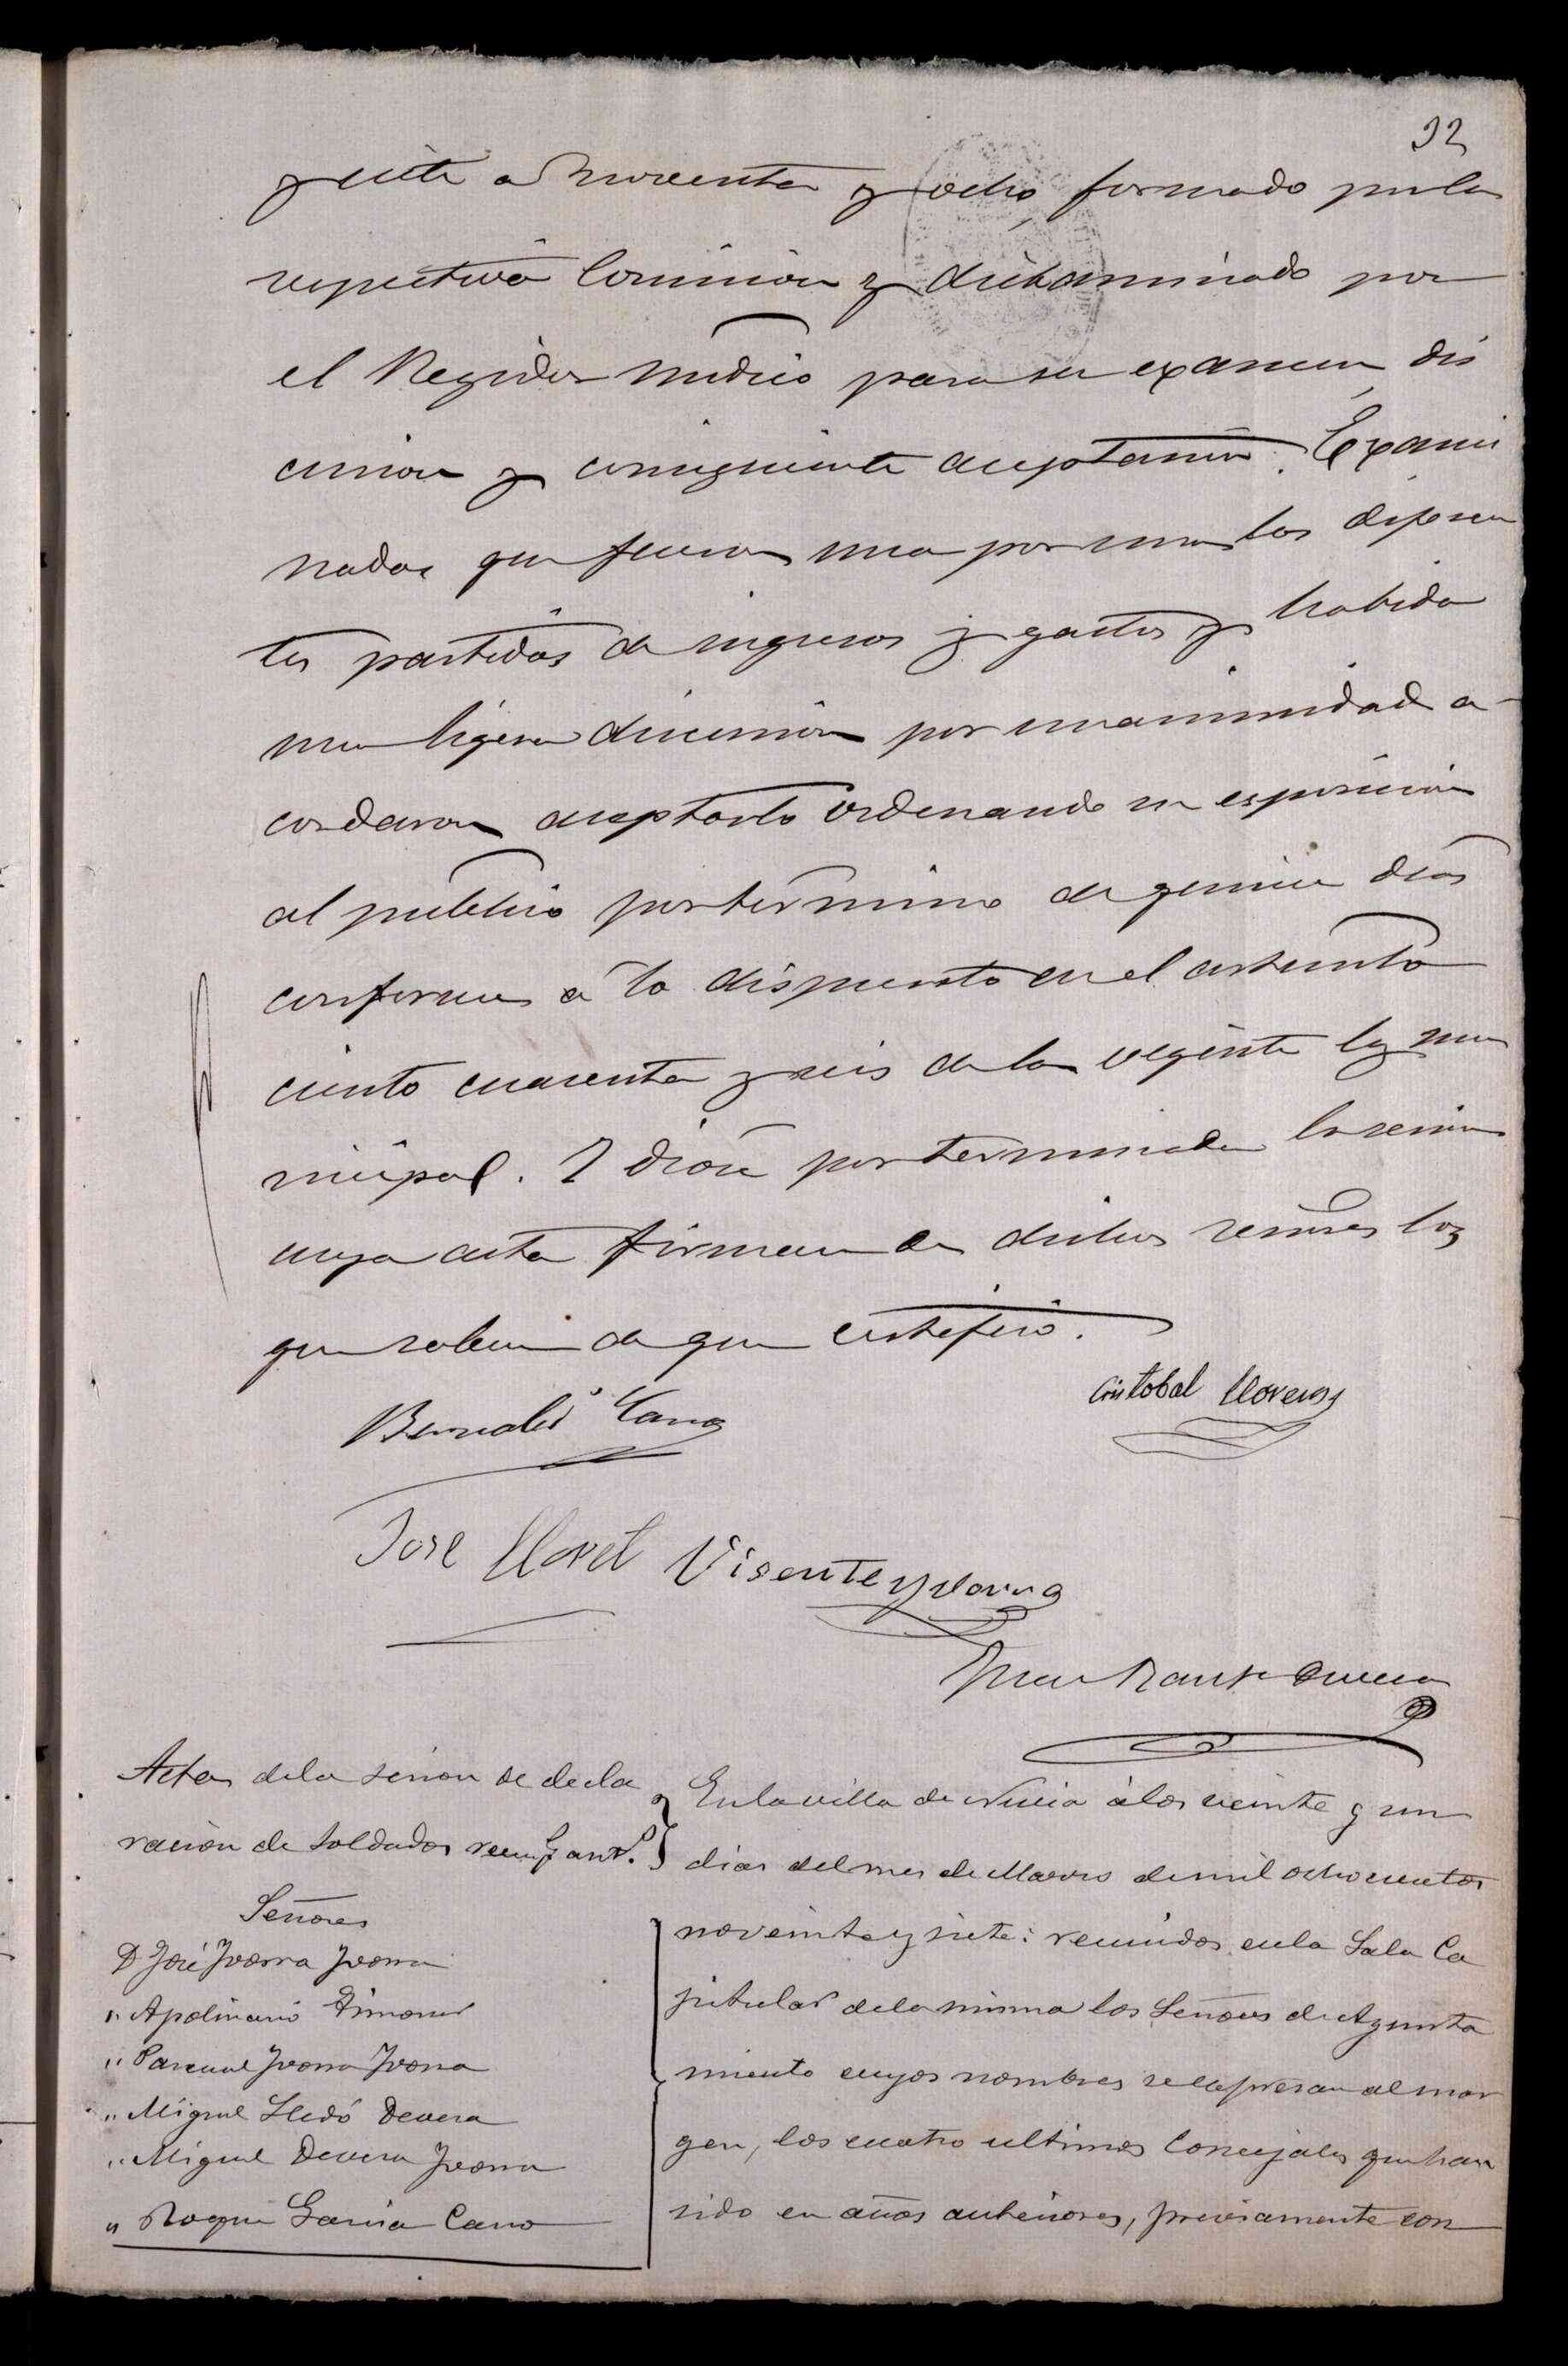 32
y siete a Noventa y ocho, formado por la
respectiva Comision y dictaminado por
el Regidor Sindico para su examen dis
cusion y consiguiente aceptación. Exami
nadas que fueron una por una las diferen
tes partidas de ingresos y gastos y habida
una ligera discusión por unanimidad a-
cordaron aceptarlo ordenando su esposicion
al publico por termino de quince dias
conforme á lo dispuesto en el articulo
ciento cuarenta y seis de la vigente ley mu
nicipal. Y dióse por terminada la sesion
cuya acta firman de dichos señores los
que saben de que certifico.
Bernabé Cano
Cristobal Llorens
José Lloret Visente Yvorra
Acta de la sesion de decla
ración de soldados
Señores
D José Ivorra Ivorra
" Apolinario Gimenez
" Pascual Ivorra Ivorra
" Miguel Lledó Devesa
" Miguel Devesa Ivorra
" Roque Garcia Cano
En la villa de Nucia á los veinte y un
dias del mes de Marzo de mil ochocientos
noventa y siete: reunidos en la Sala Ca
pitular de la misma los Señores de Ayunta
miento cuyos nombres se espresan al mar
gen, los cuatro ultimos Concejales que han
sido en años anteriores, previamente con